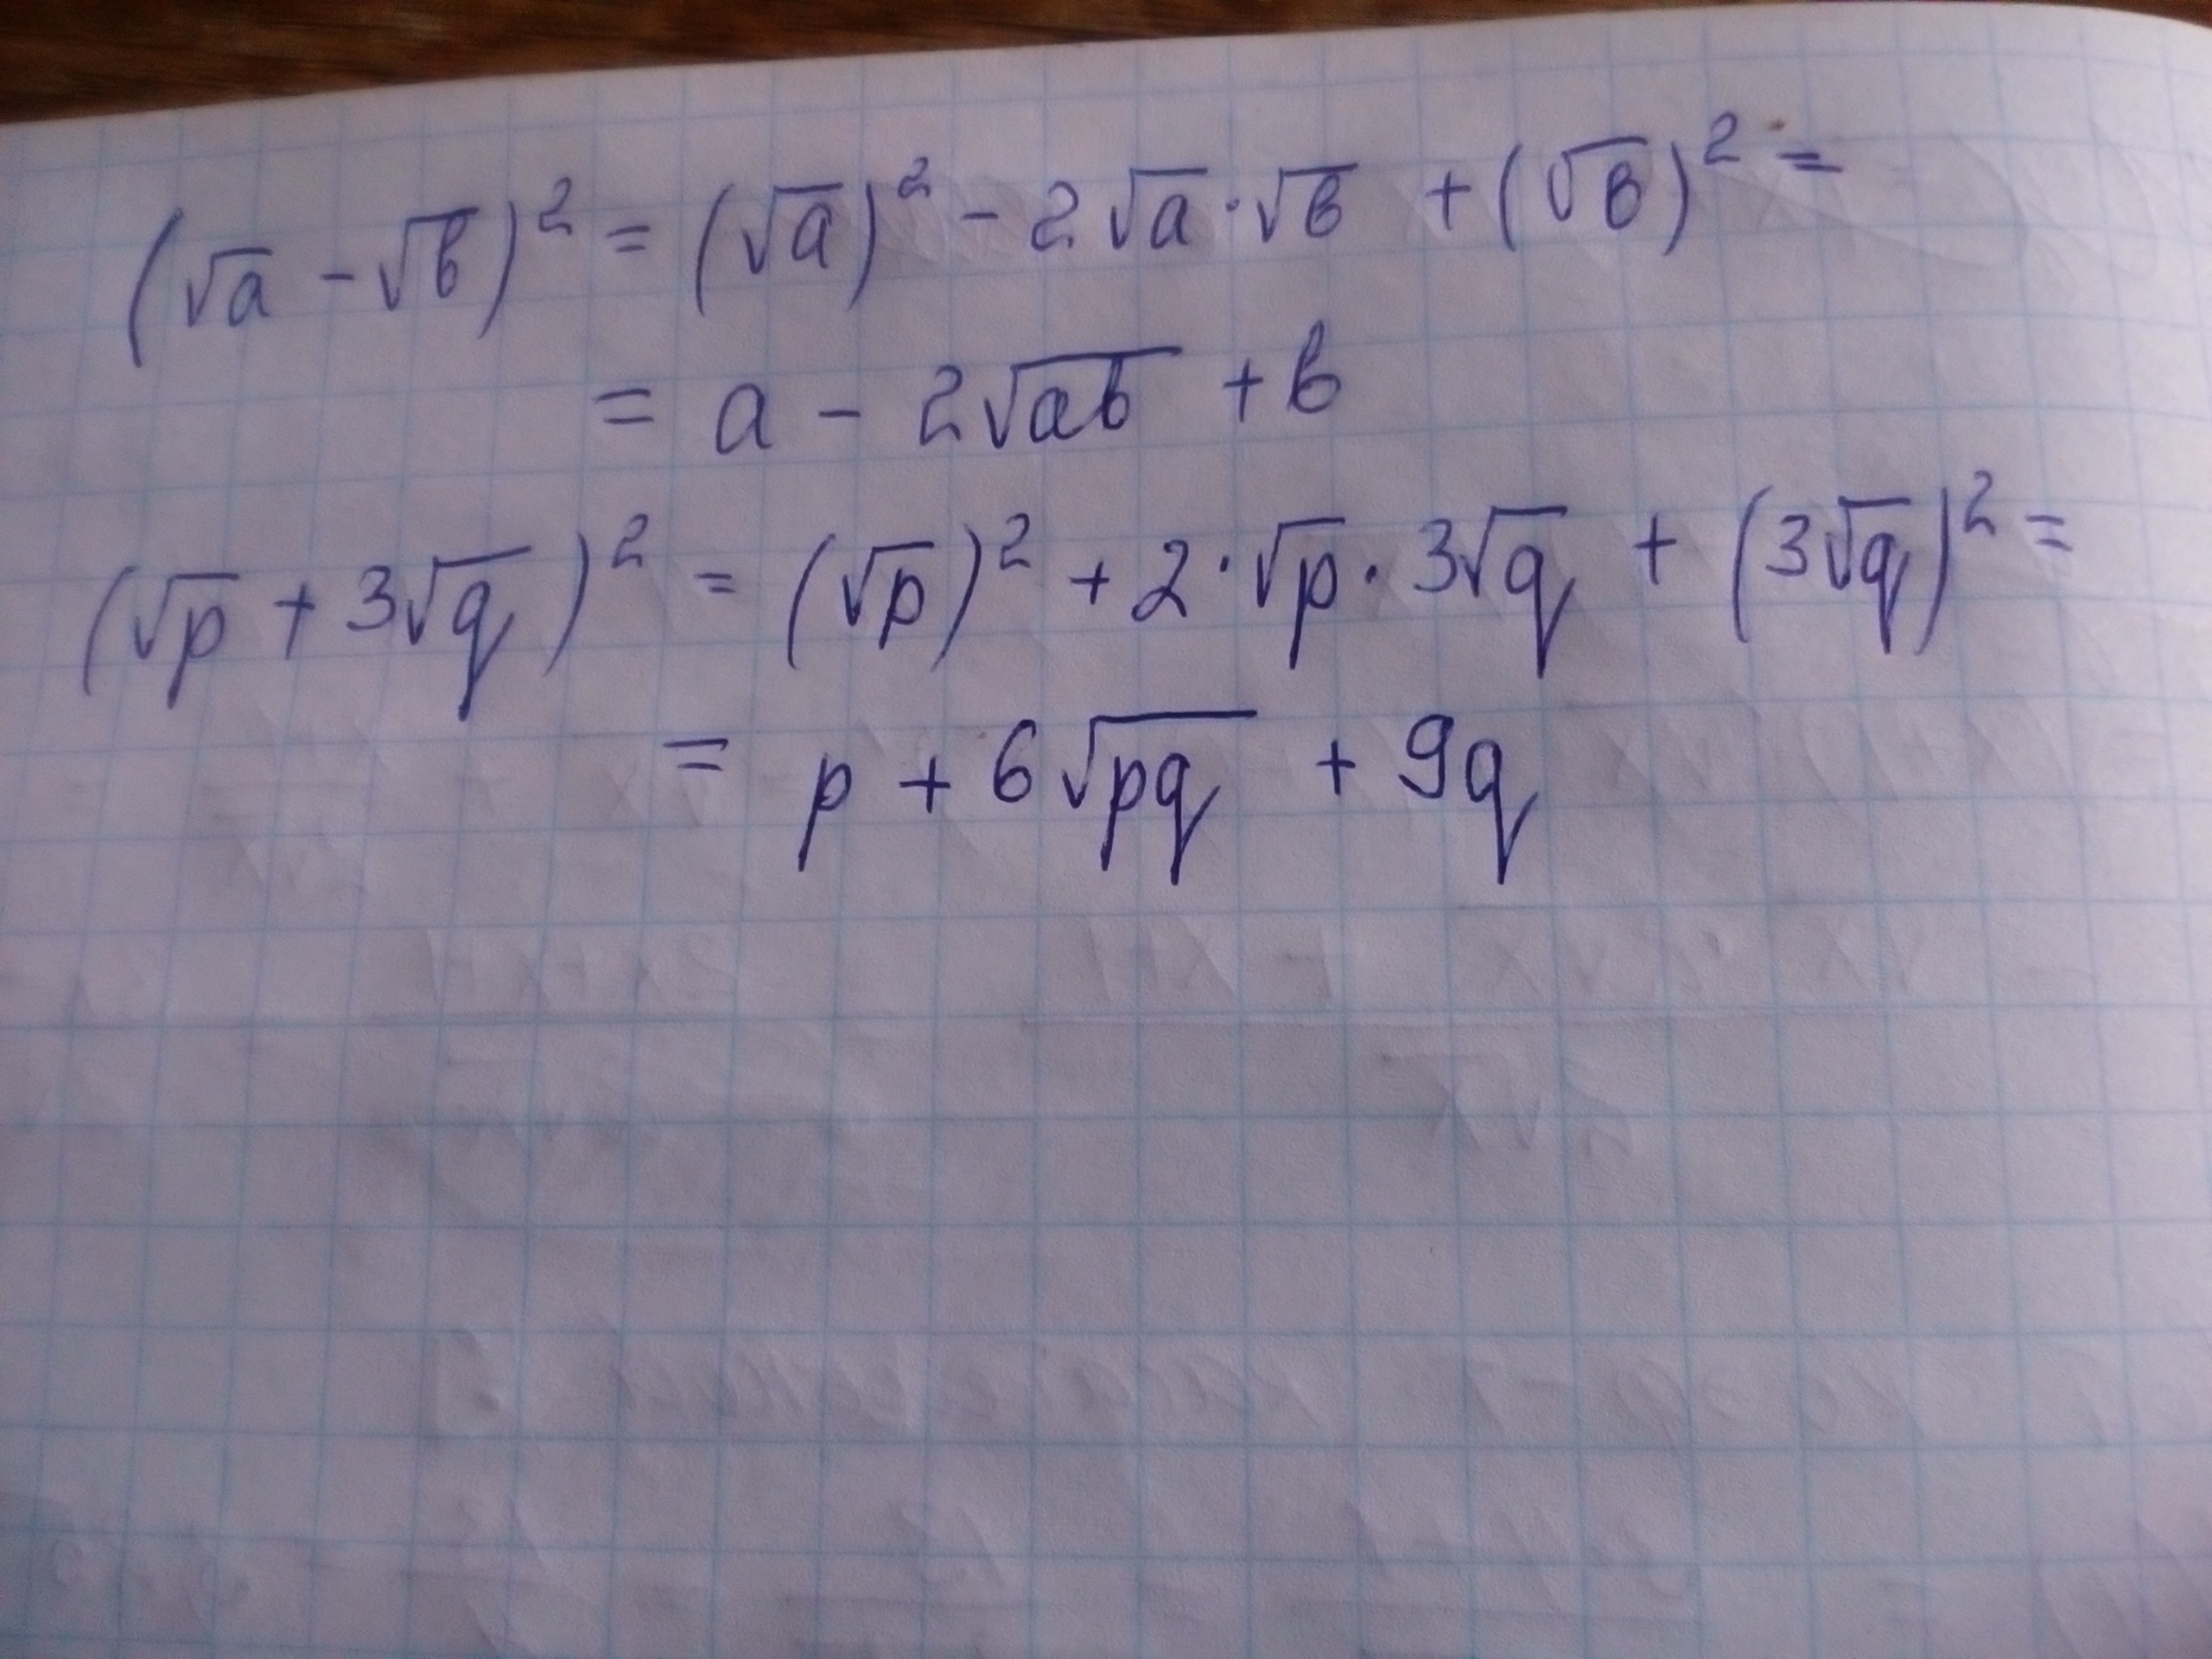 (√a - √b)² = (√a)² - 2√a · √b + (√b)² =
= a - 2√ab + b
(√p + 3√q)² = (√p)² + 2 · √p · 3√q + (3√q)² =
= p + 6√pq + 9q